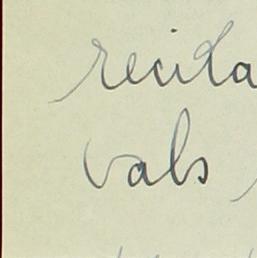 recita
vals